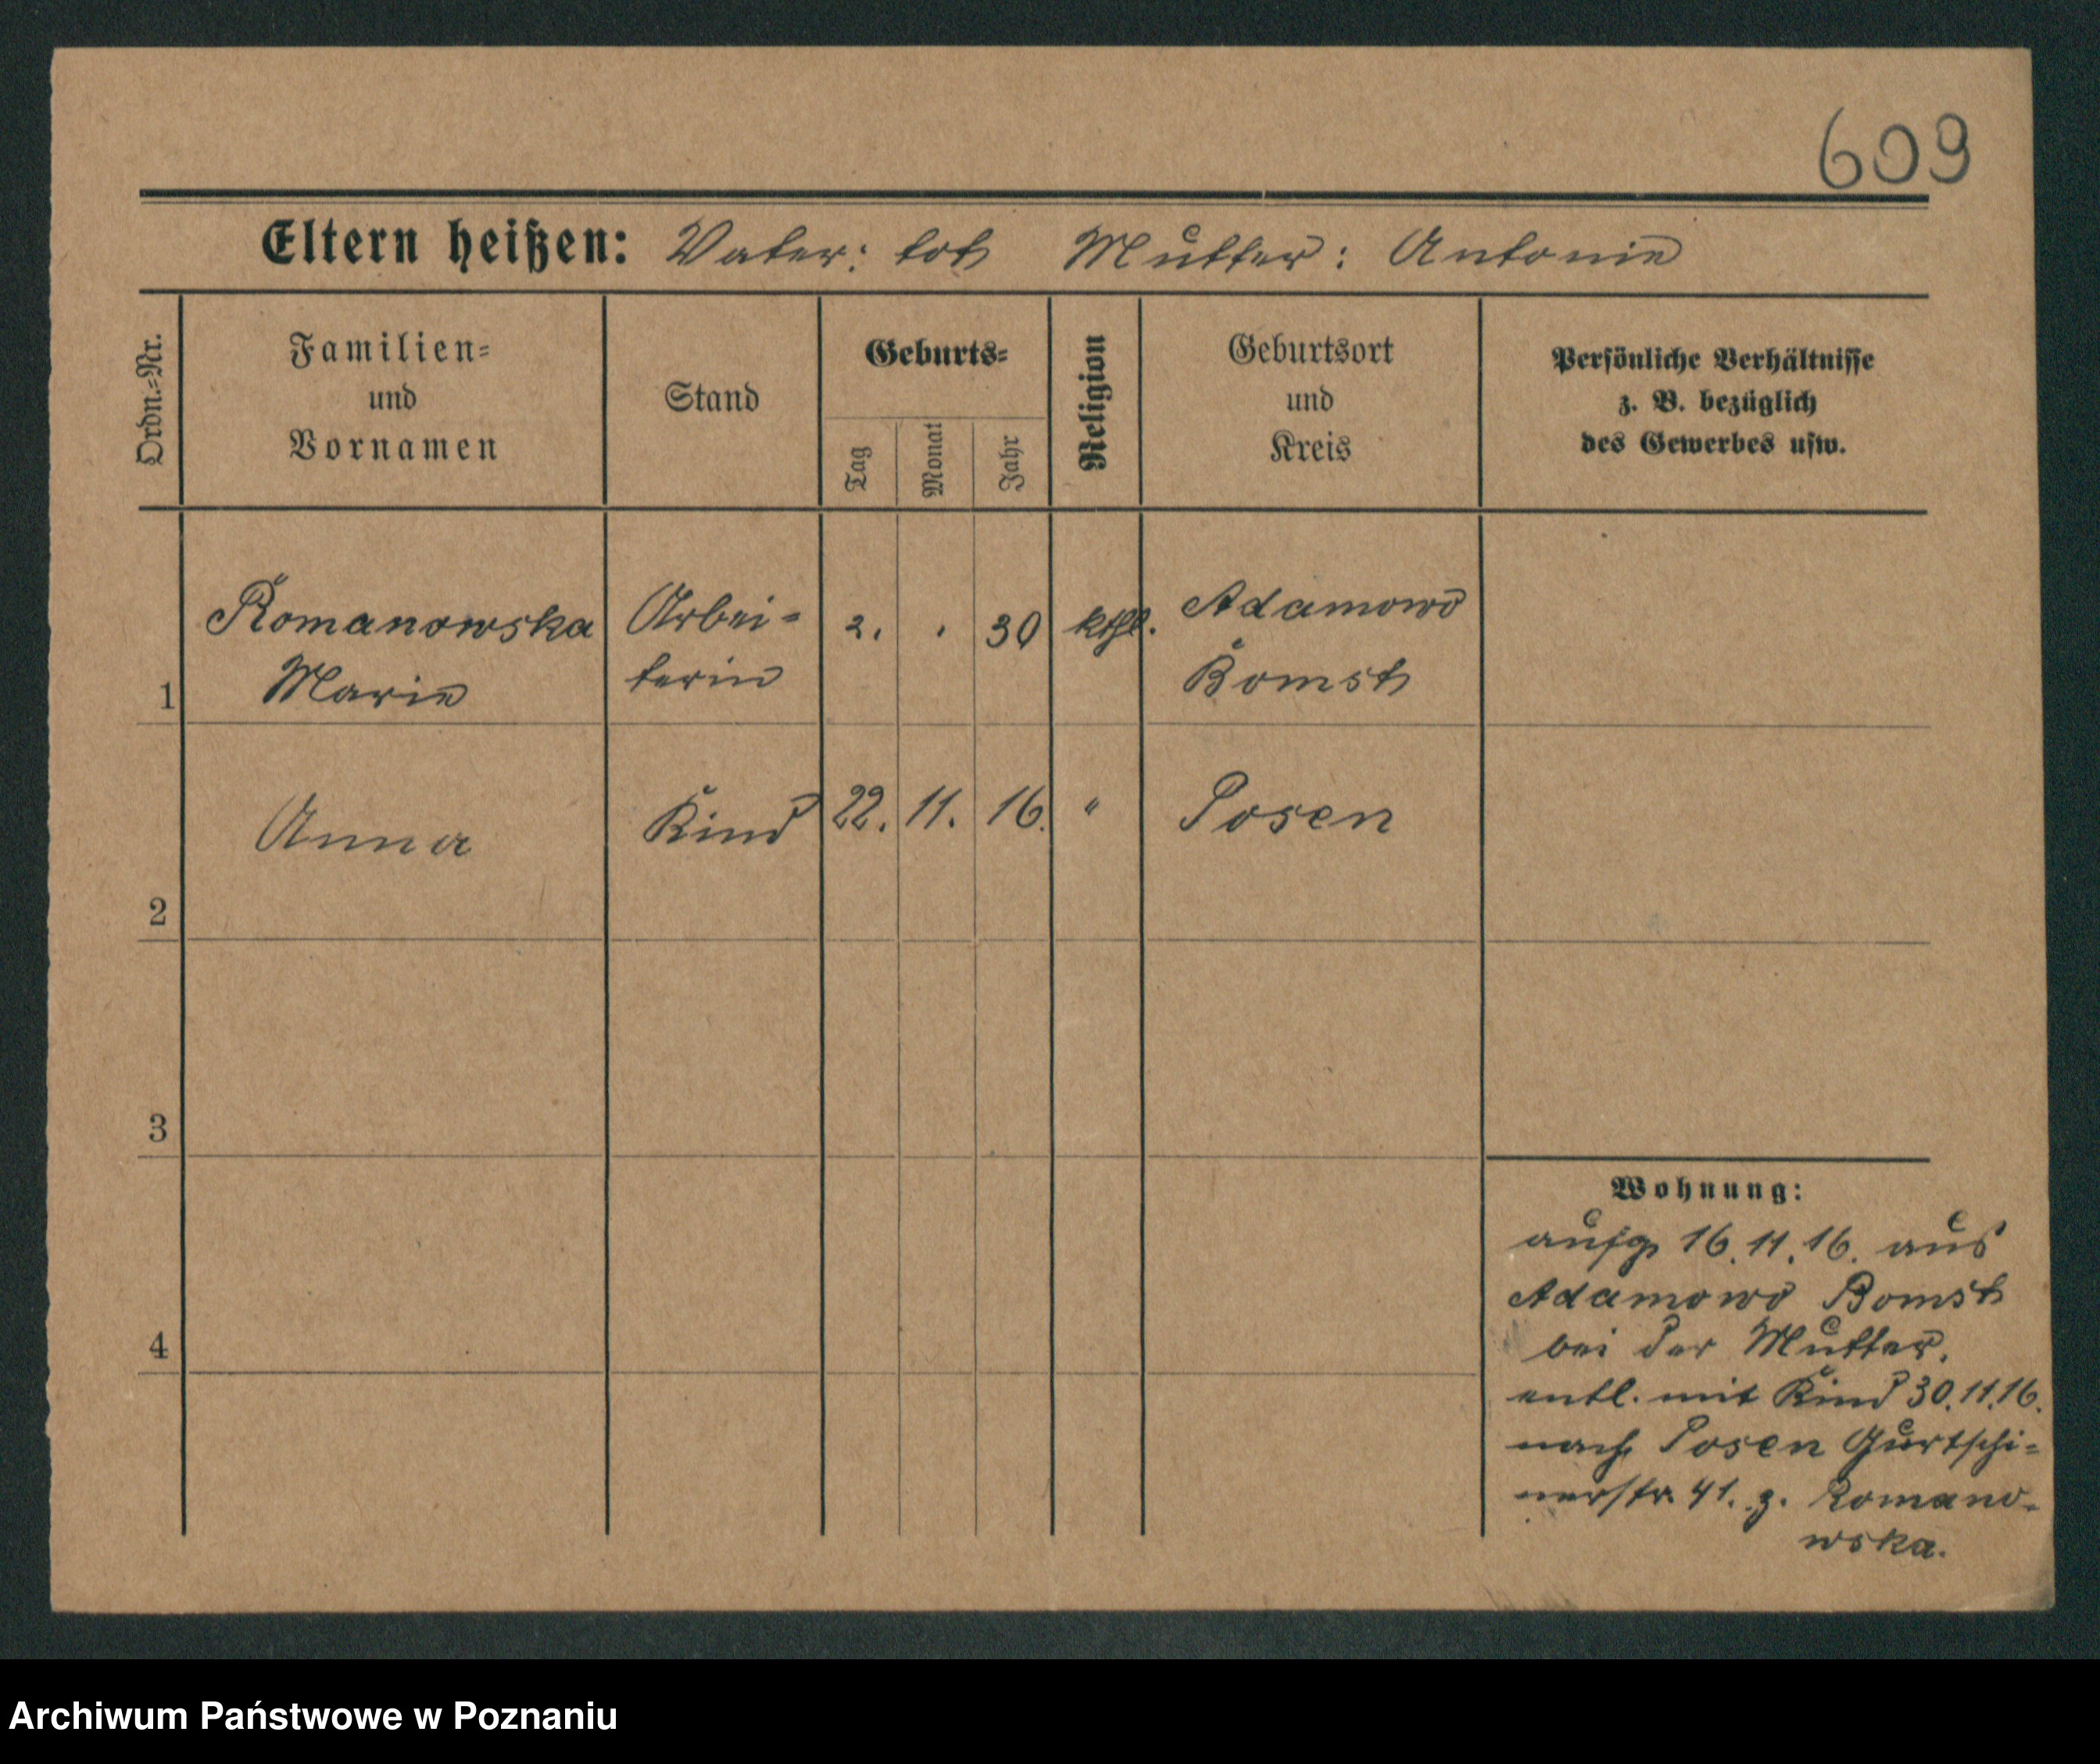 609
Eltern heißen: Vater: tot Mutter: Antonie
Ordn.-Nr.
Familien-
und
Vornamen
Stand
Geburts-
Tag
Monat
Jahr
Religion
Geburtsort
und
Kreis
Persönliche Verhältnisse
z. B. bezüglich
des Gewerbes usw.
1
Romanowska
Marie
Arbei-
terin
2. . 30
kthl.
Adamowo
Bomst
2
Anna
Kind
22. 11. 16.
"
Posen
3
4
Wohnung:
aufg. 16.11.16. aus
Adamowo Bomst
bei der Mutter.
entl. mit Kind 30.11.16.
nach Posen Gurtschi-
nerstr. 41. z. Romano-
wska.
Archiwum Państwowe w Poznaniu